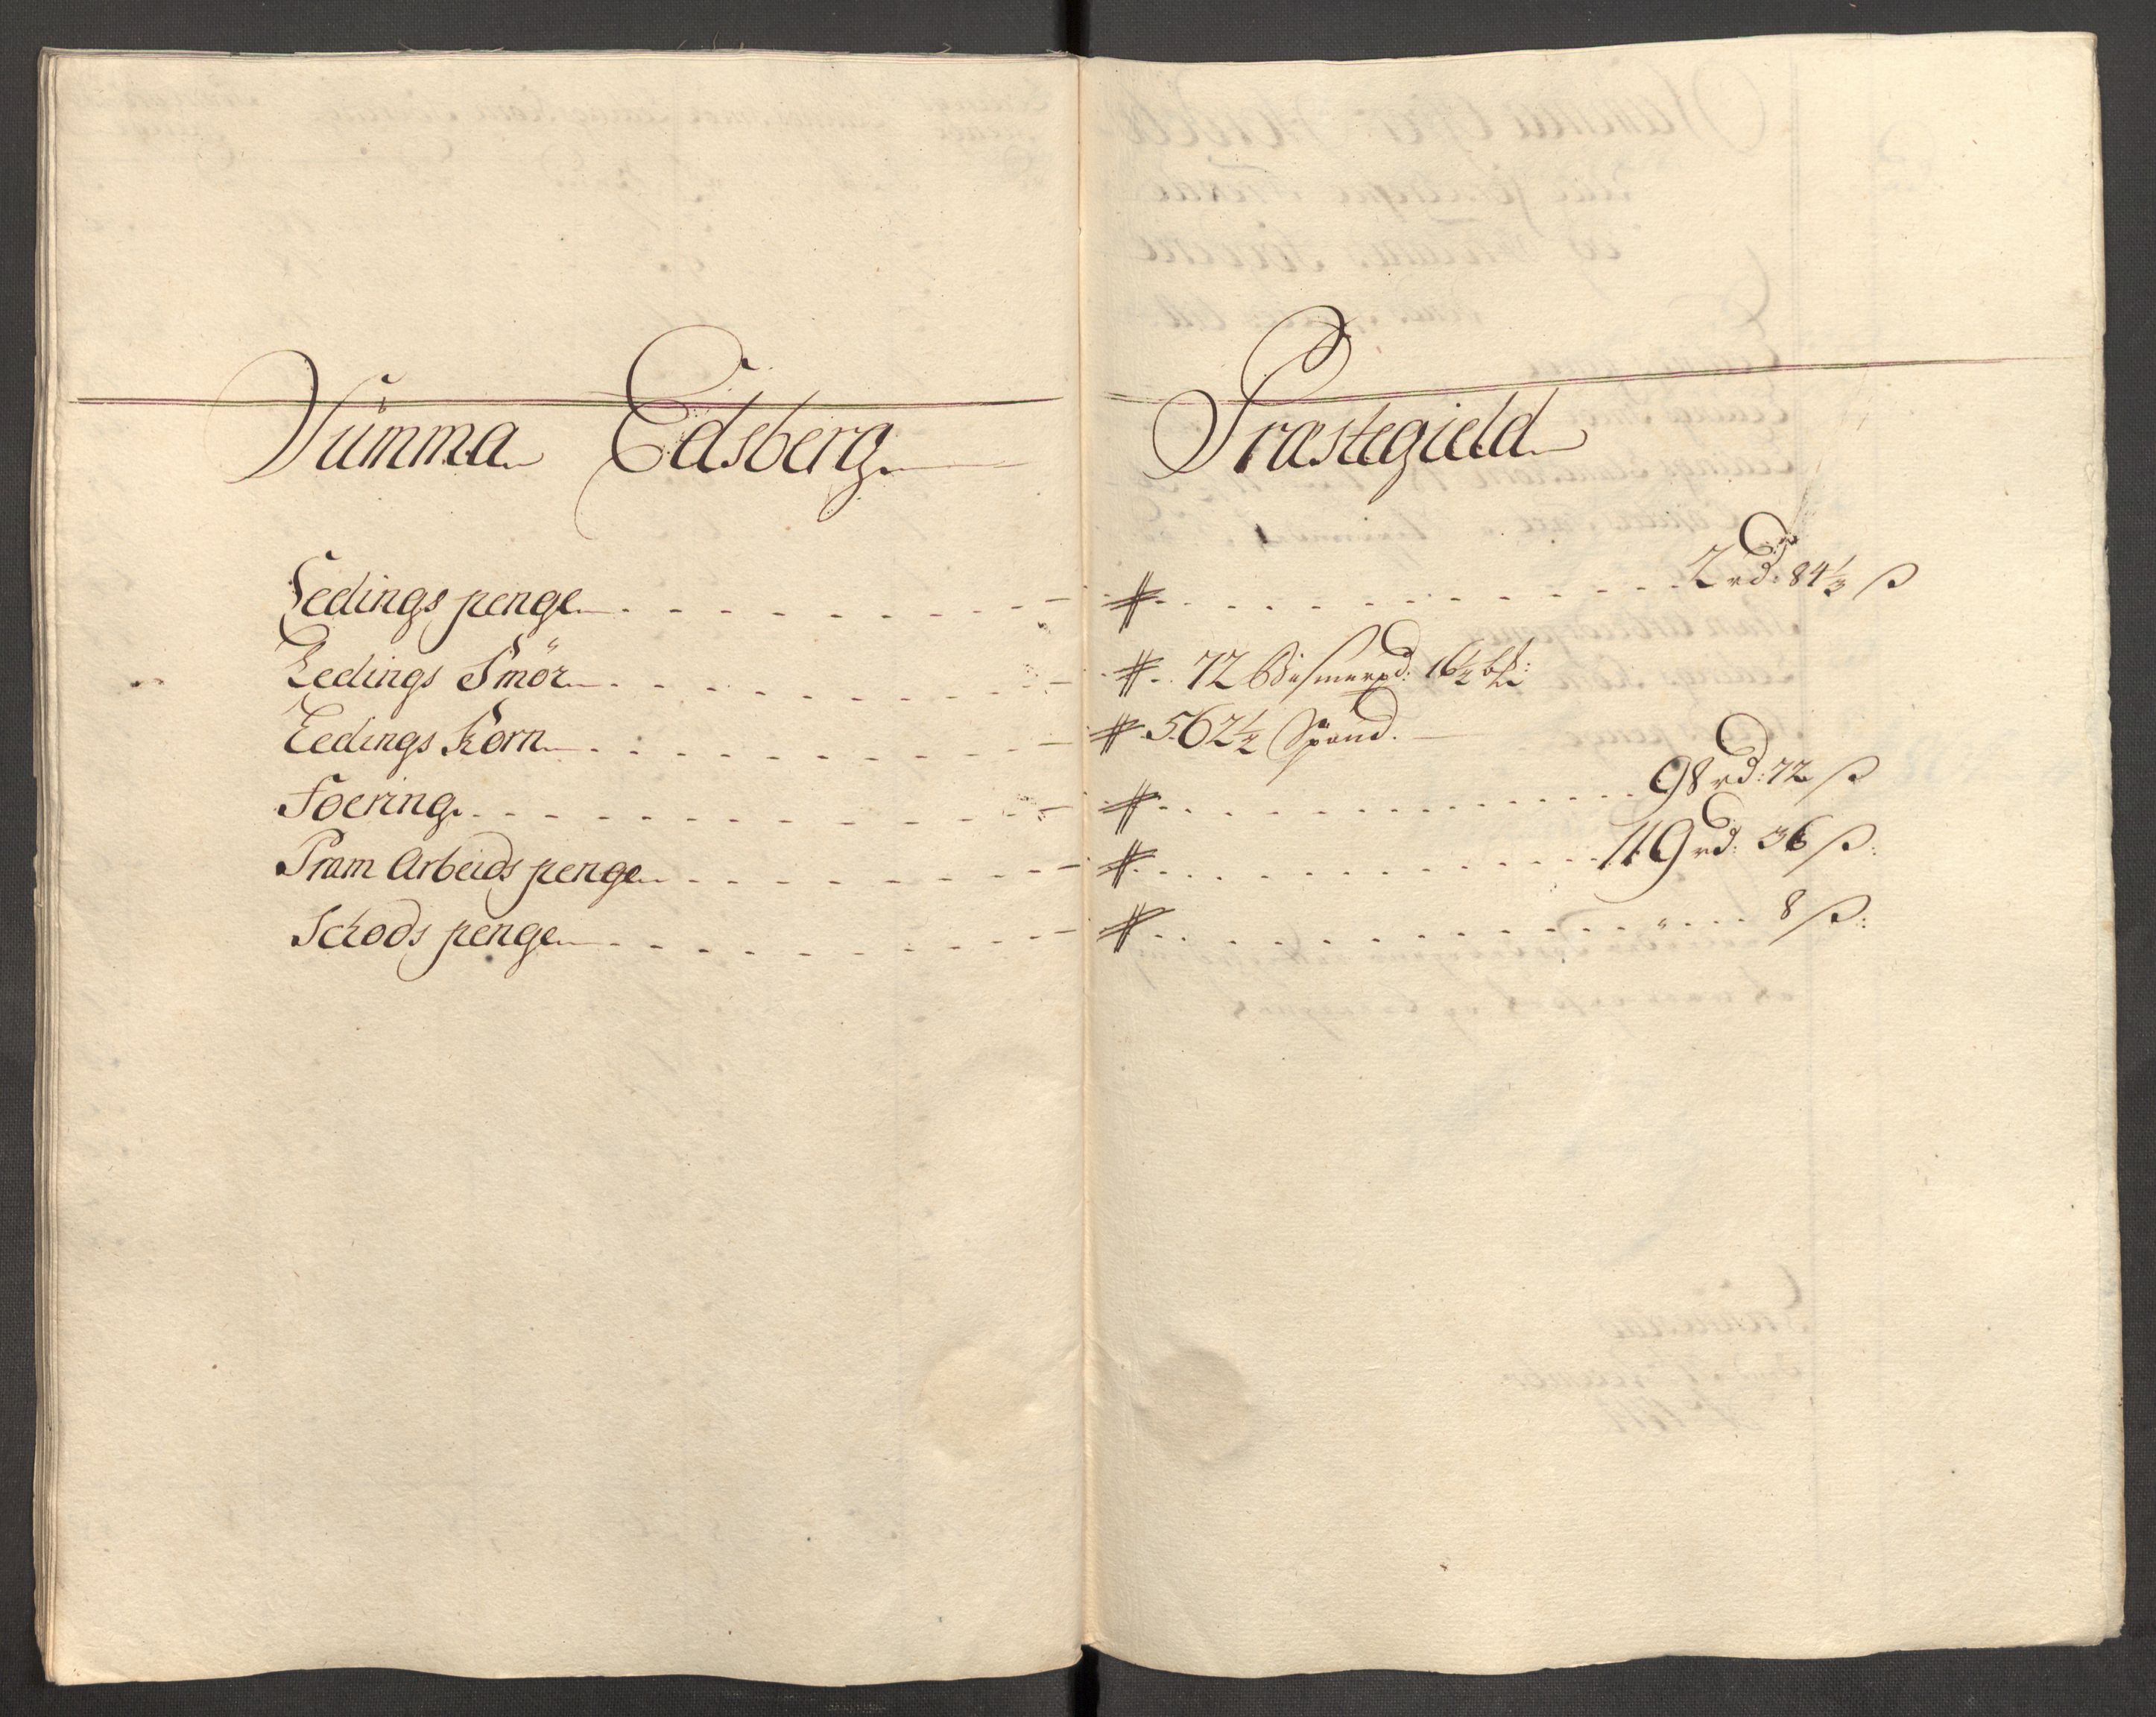 Summa Edsberg Præstegield
Ledings penge # 2 rd: 84⅓ ß
Ledings Smör # 72 Bismerpd: 16½
Ledings Korn # 562½ Spand.
Foering # 98 rd: 72 ß
Pram Arbeids penge # 119 rd: 36 ß:
Schods penge # " 8 ß: